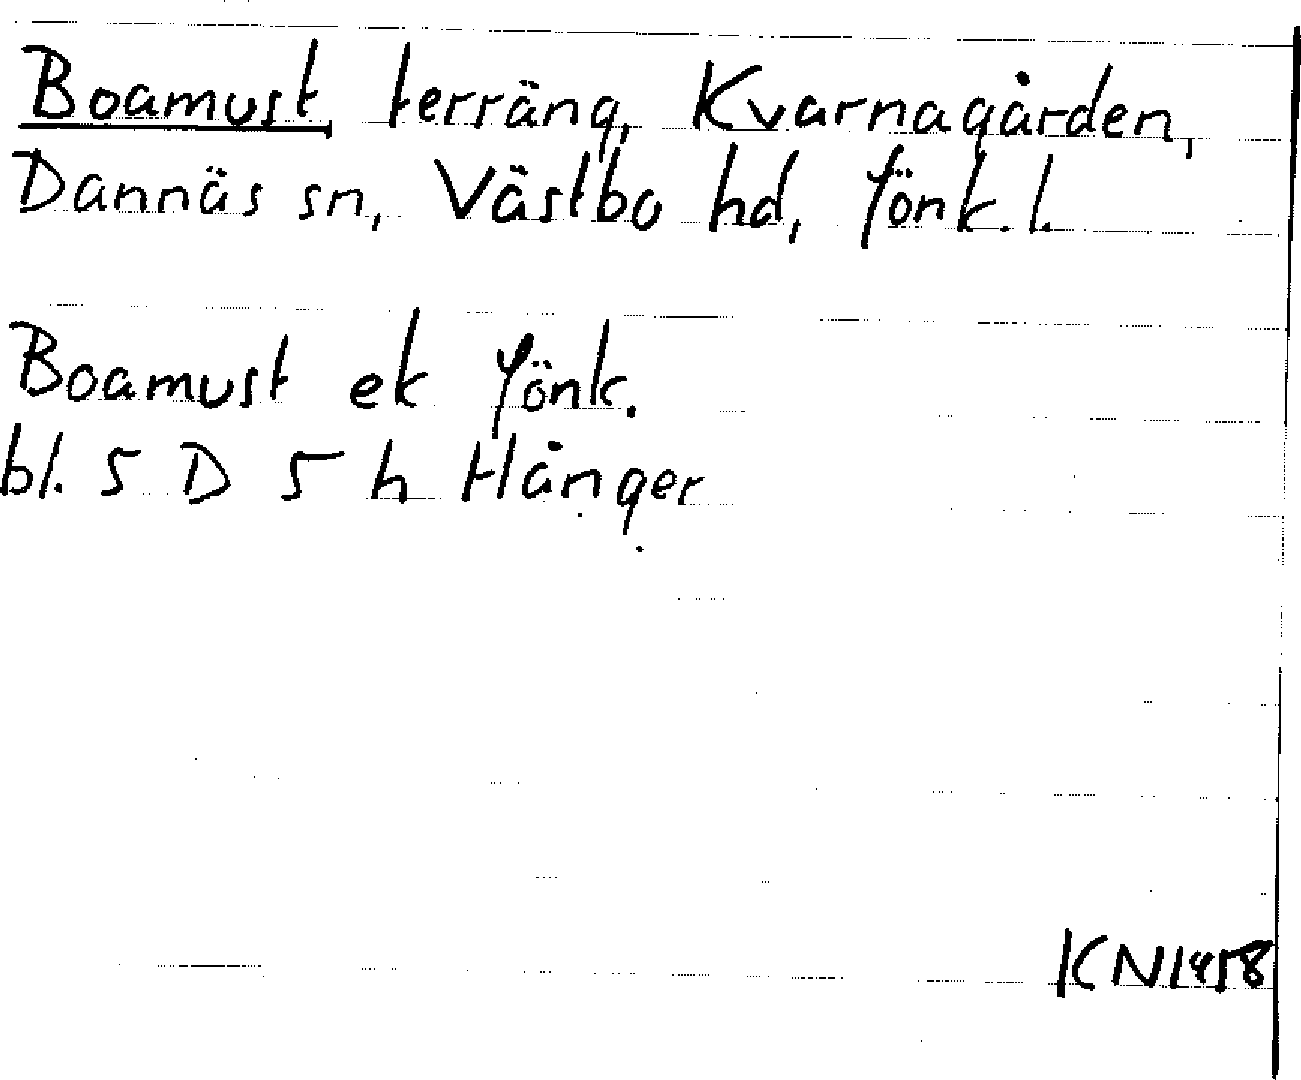 Boamust, terräng, Kvarnagården,
Dannäs sn, Västbo hd, Jönk. l.
Boamust ek Jönk.
bl. 5 D 5 h Hånger
KN1958